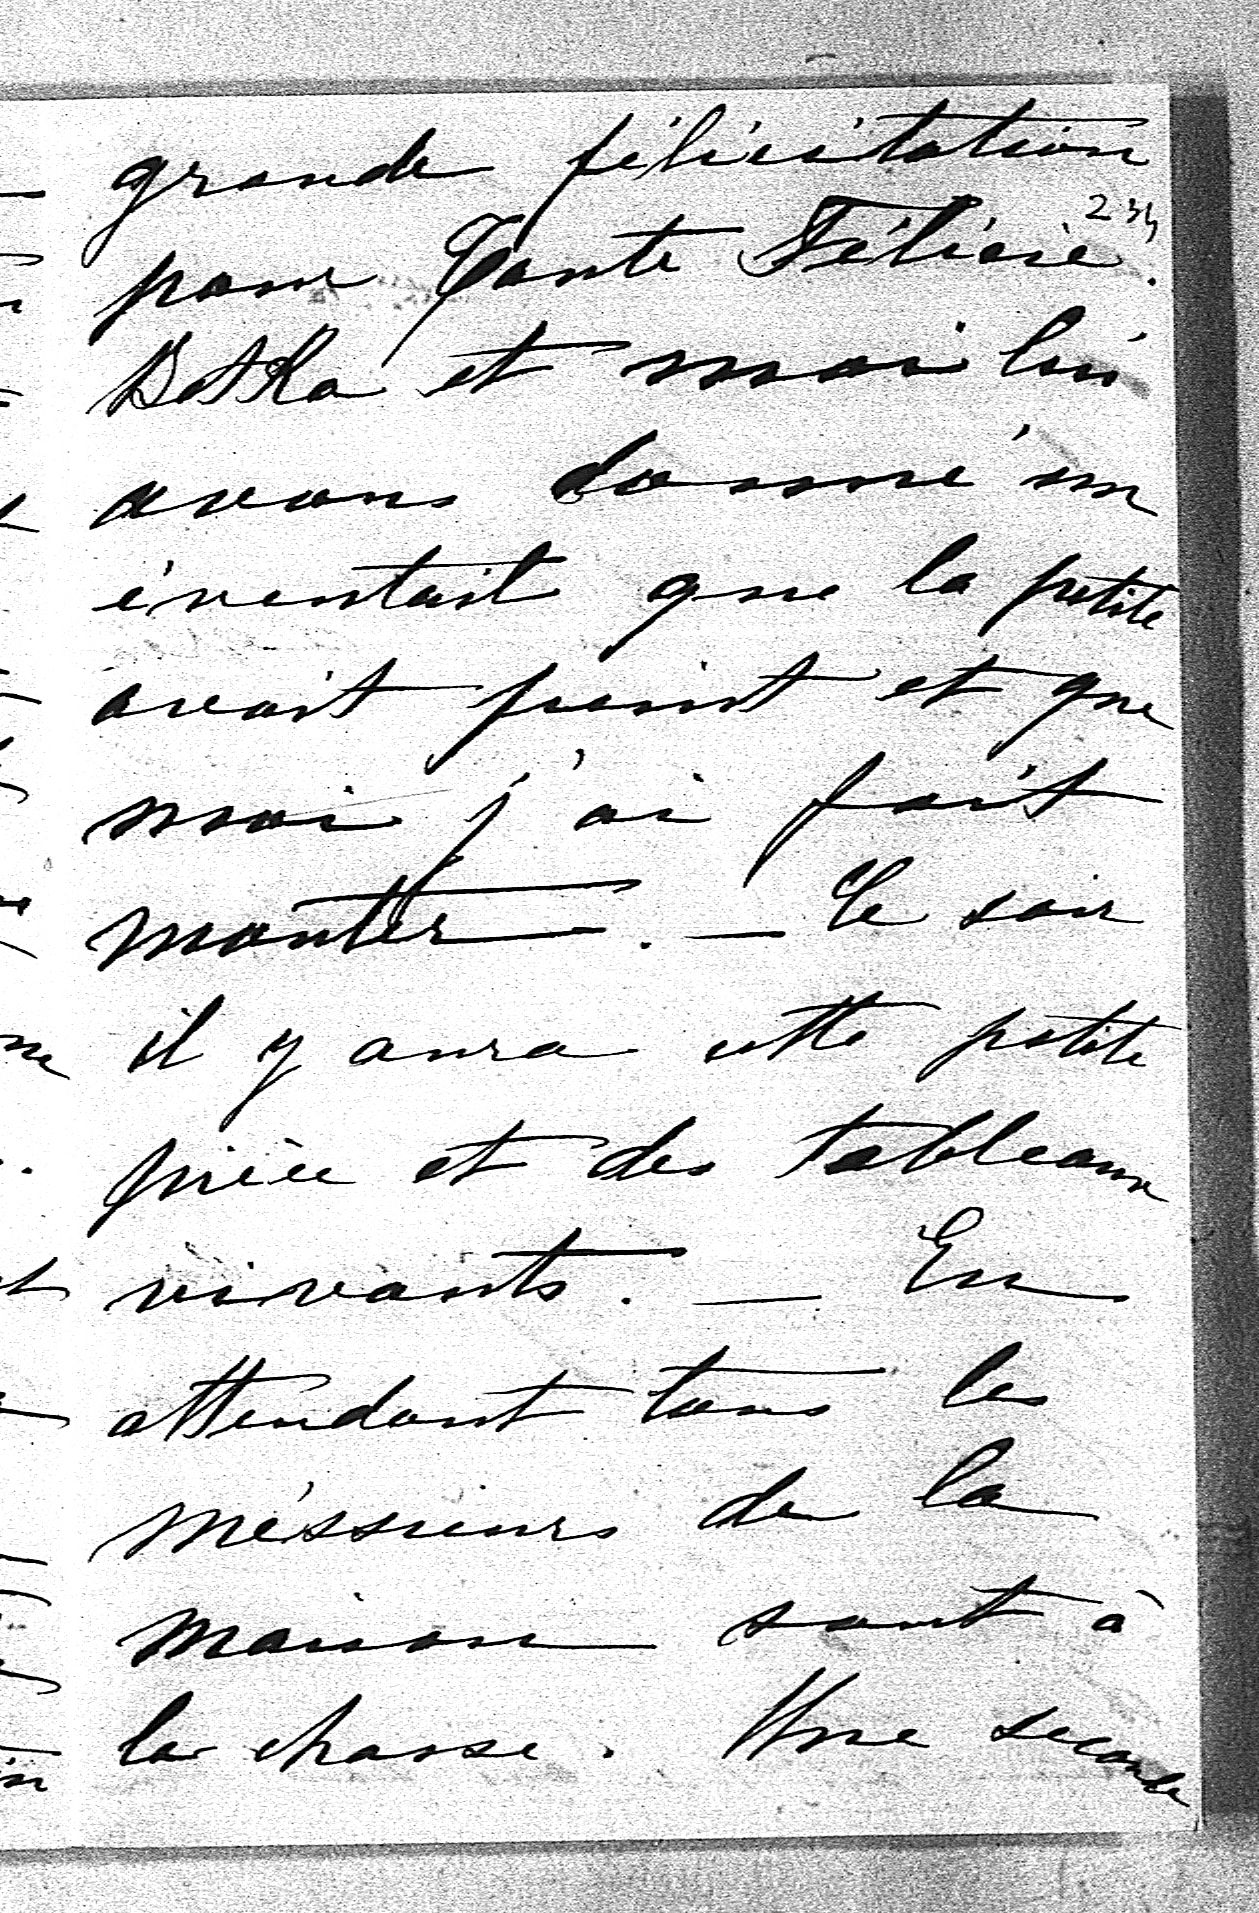 grande félicitation
234
pour Tante Félicie.
Botka et moi lui
avons donné un
éventait que la petite
avait peint et que
moi j'ai fait
monter. — Ce soir
il y aura cette petite
pièce et des tableaux
vivants. — En
attendant tous les
méssieurs de la
maison sont à
la chasse. Une seconde